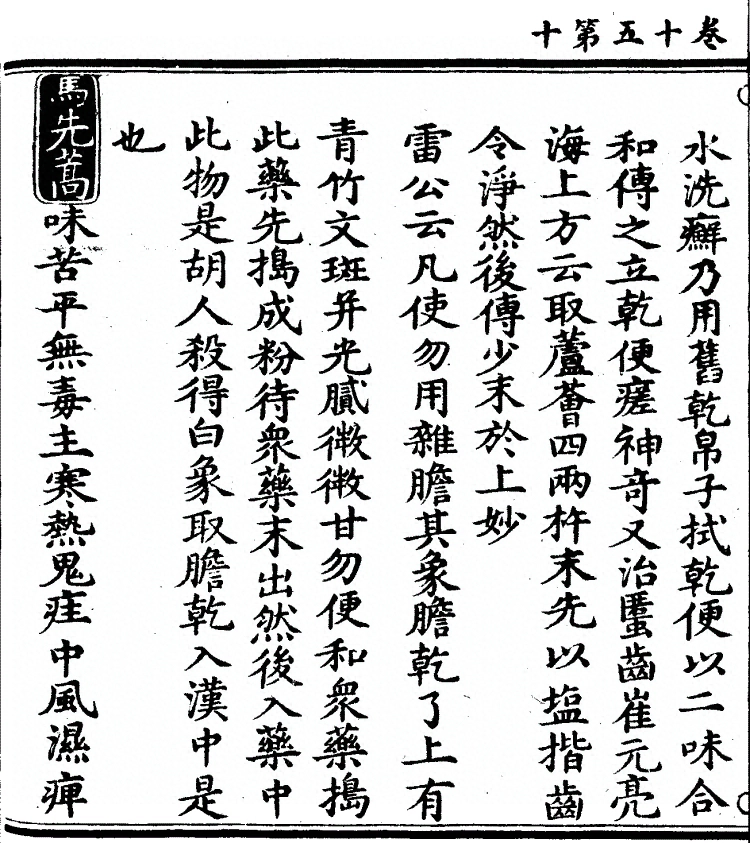 卷十五第十
水洗癬乃用舊乾帛子拭乾便以二味合
和傅之立乾便瘥神奇又治䘌齒崔元亮
海上方云取蘆薈四兩杵末先以塩揩齒
令淨然後傅少末於上妙
雷公云凡使勿用雜膽其象膽乾了上有
青竹文斑并光膩微微甘勿便和衆藥搗
此藥先搗成粉待衆藥末出然後入藥中
此物是胡人殺得白象取膽乾入漢中是
也
馬先蒿味苦平無毒主寒熱鬼疰中風濕痺